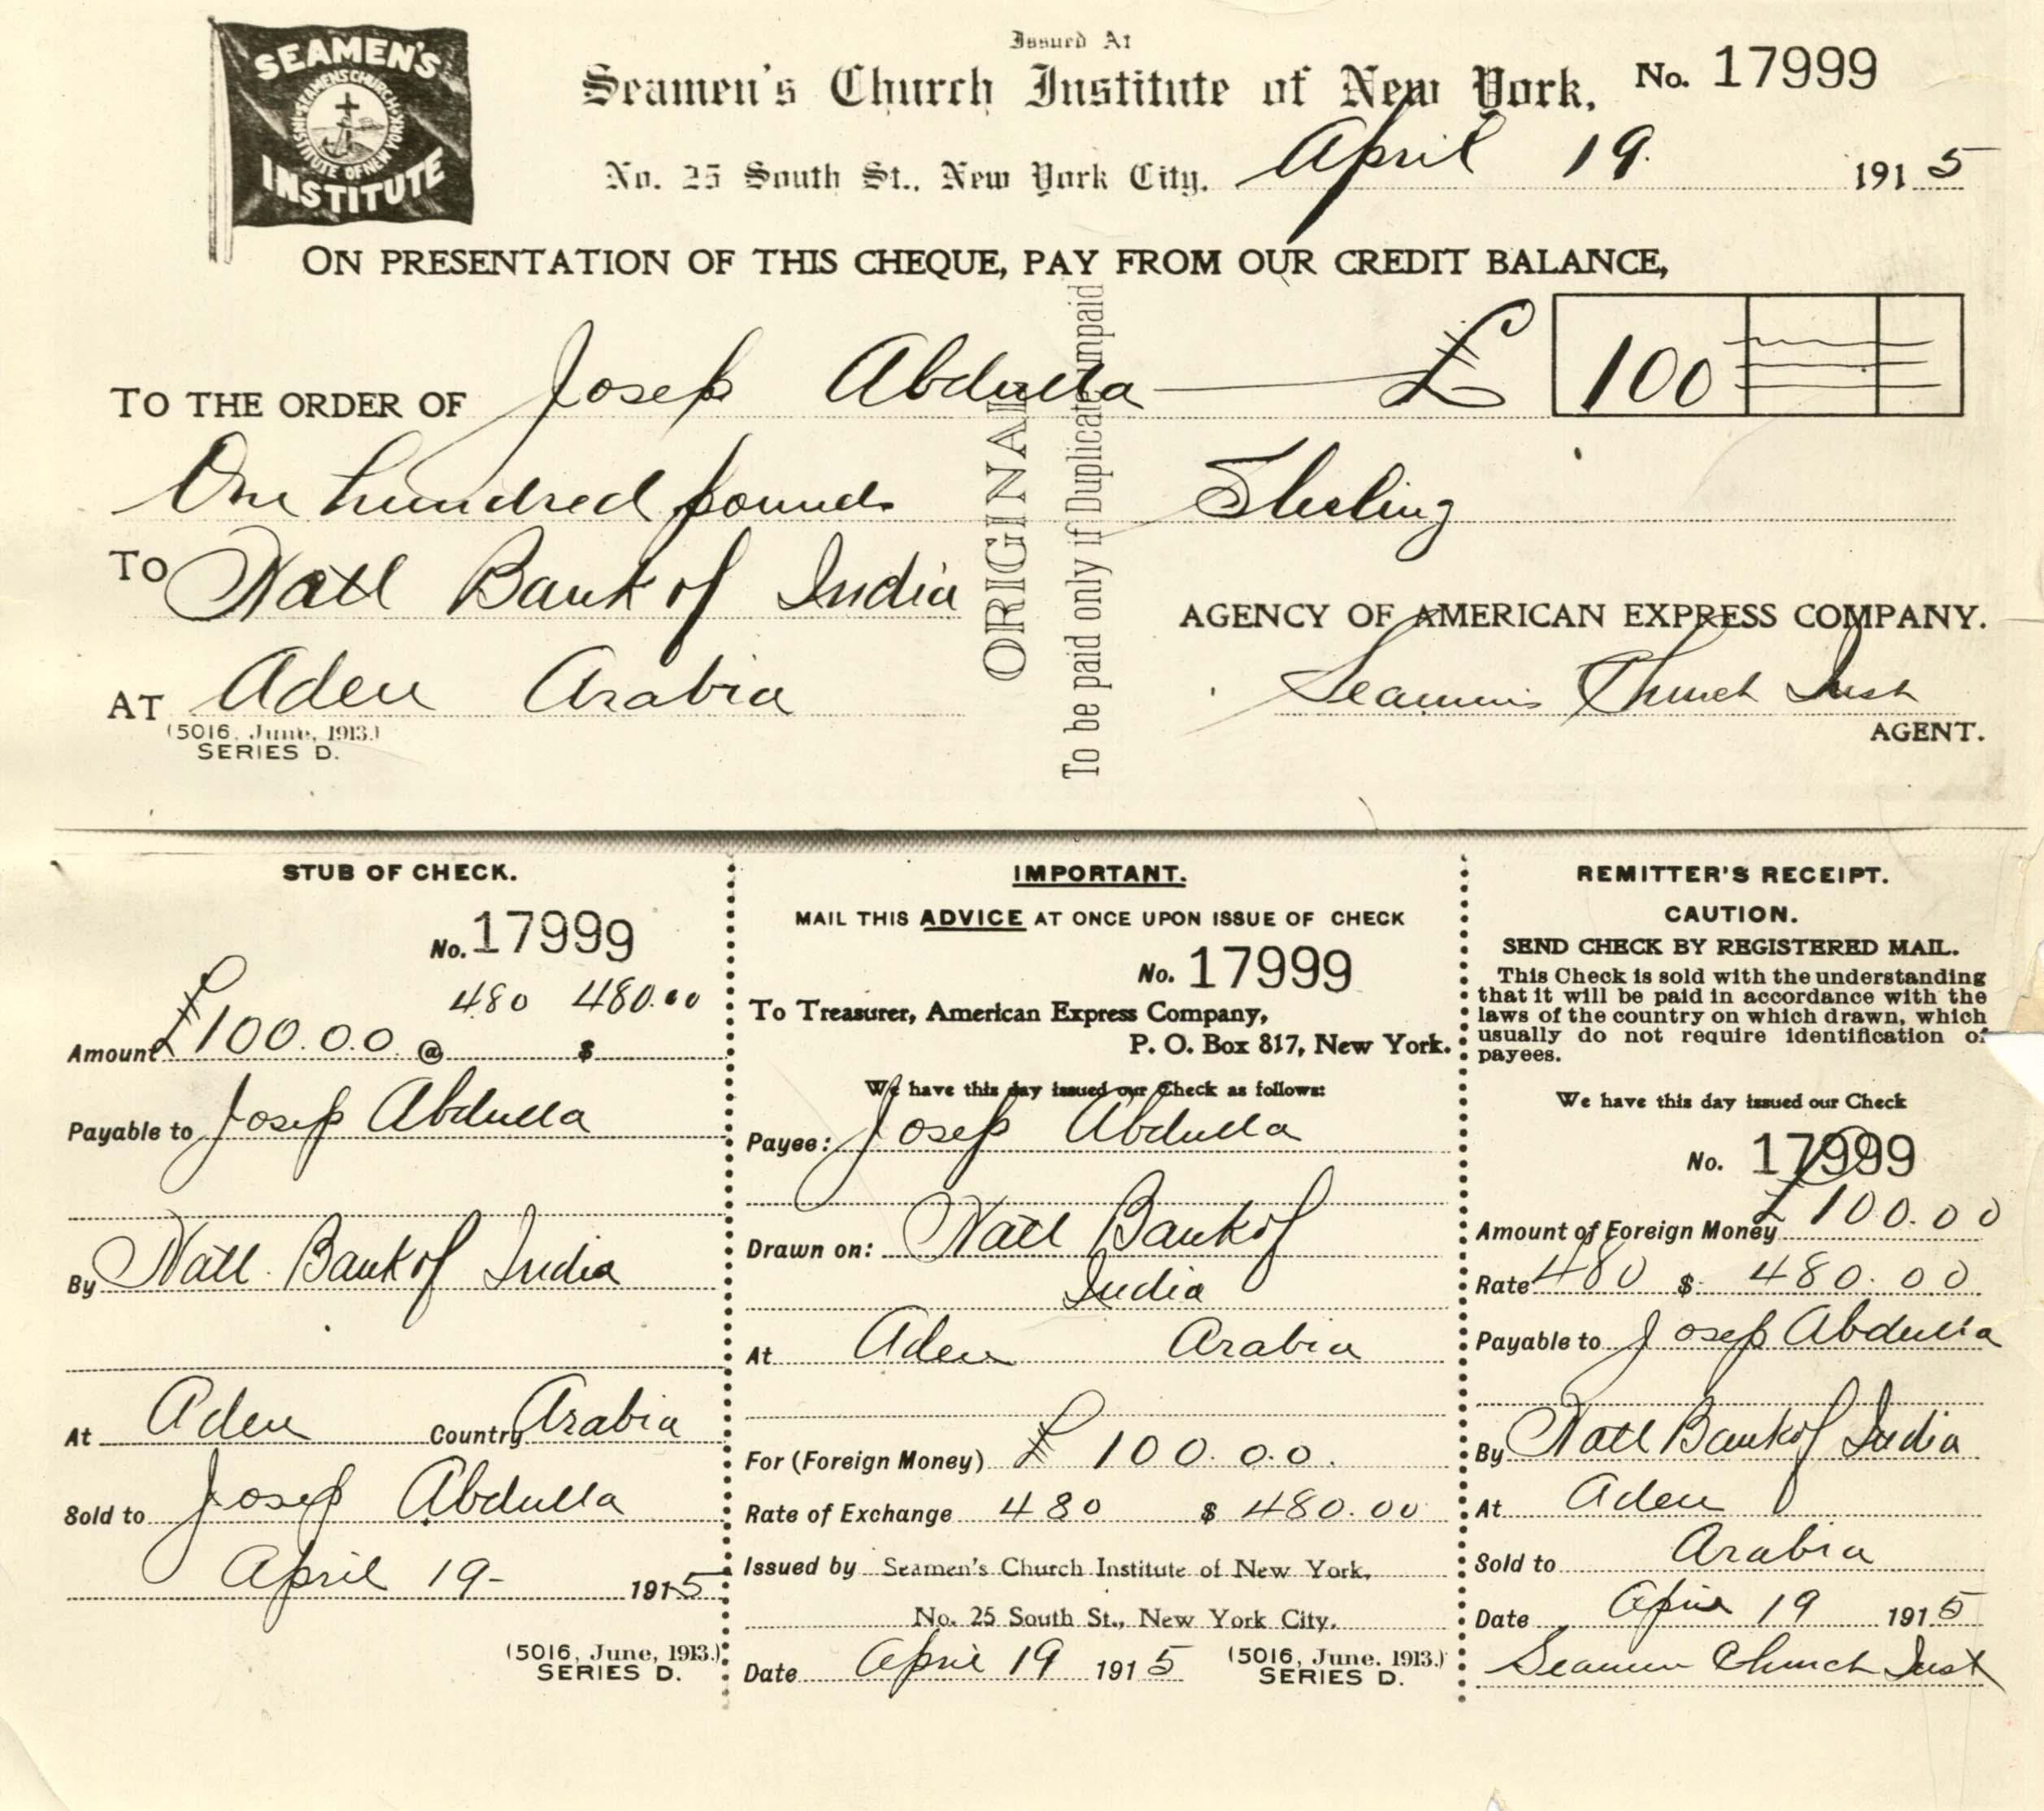 SEAMEN'S
SEAMENS CHURCH INSTITUTE OF NEW YORK
INSTITUTE
Issued At
Seamen's Church Institute of New York, No. 17999
No. 25 South St., New York City. April 19. 1915
ON PRESENTATION OF THIS CHEQUE, PAY FROM OUR CREDIT BALANCE,
TO THE ORDER OF Josep Abdulla £ 100
One hundred pounds Sterling
TO Natl Bank of India
AGENCY OF AMERICAN EXPRESS COMPANY.
AT Aden Arabia
Seamens Church Inst
AGENT.
(5016, June, 1913.)
SERIES D.
ORIGINAL
To be paid only if Duplicate unpaid
STUB OF CHECK.
No. 17999
480 480.00
Amount £100.0.0 @ $
Payable to Josep Abdulla
By Natl. Bank of India
At Aden Country Arabia
Sold to Josep Abdulla
April 19- 1915
(5016, June, 1913.)
SERIES D.
IMPORTANT.
MAIL THIS ADVICE AT ONCE UPON ISSUE OF CHECK
No. 17999
To Treasurer, American Express Company,
P. O. Box 817, New York.
We have this day issued our Check as follows:
Payee: Josep Abdulla
Drawn on: Natl Bank of
India
At Aden Arabia
For (Foreign Money) £ 100.0.0.
Rate of Exchange 480 $ 480.00
Issued by Seamen's Church Institute of New York,
No. 25 South St., New York City.
Date April 19 1915
(5016, June. 1913.)
SERIES D.
REMITTER'S RECEIPT.
CAUTION.
SEND CHECK BY REGISTERED MAIL.
This Check is sold with the understanding
that it will be paid in accordance with the
laws of the country on which drawn, which
usually do not require identification of
payees.
We have this day issued our Check
No. 17999
Amount of Foreign Money £100.00
Rate 480 $ 480.00
Payable to Josep Abdulla
By Natl Bank of India
At Aden
Sold to Arabia
Date April 19 1915
Seamen Church Inst